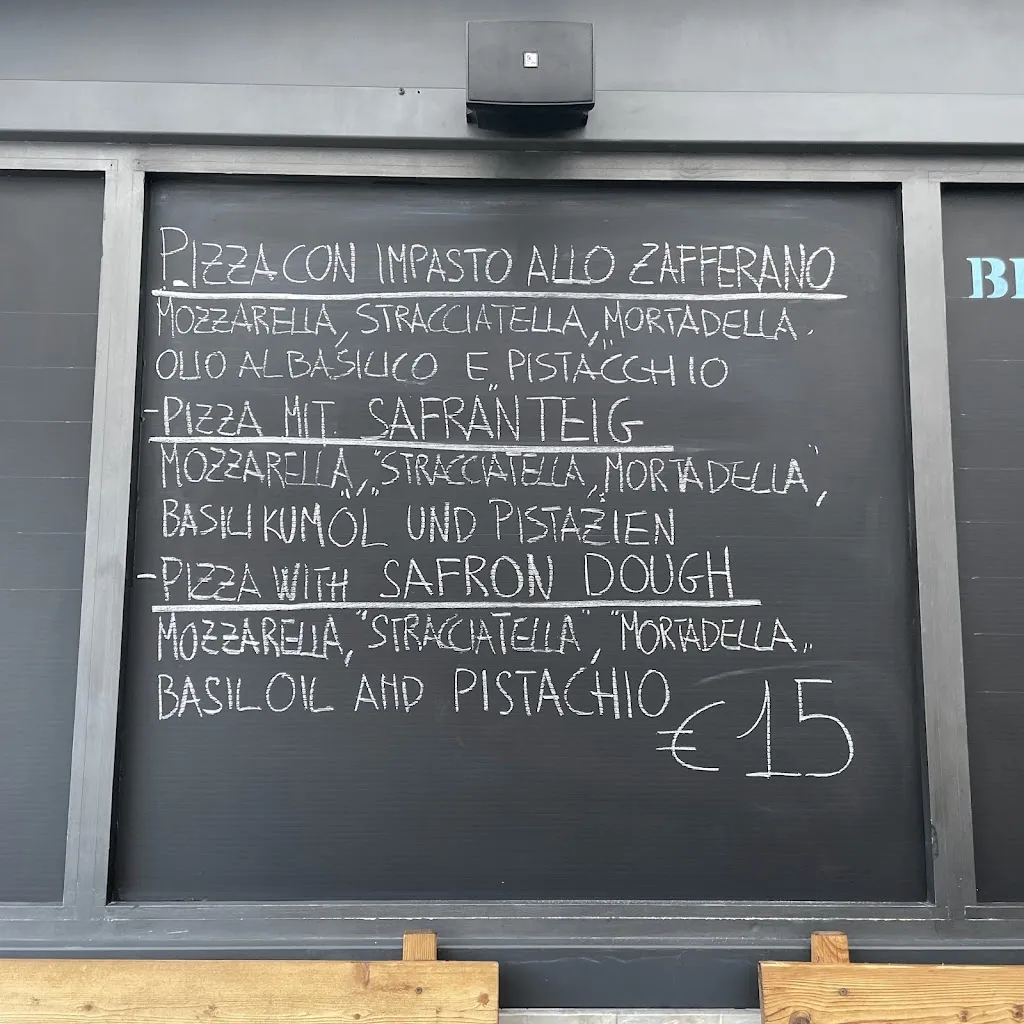 PIZZA CON IMPASTO ALLO ZAFFERANO
MOZZARELLA, STRACCIATELLA, "MORTADELLA.
OLIO AL BASILICO E PISTACCHIO
-PIZZA MIT SAFRAN TEIG
MOZZARELLA, "STRACCIATELLA, "MORTADELLA",
BASILIKUMÖL UND PISTAZIEN
-PIZZA WITH SAFRON DOUGH
MOZZARELLA, "STRACCIATELLA", "MORTADELLA„
BASIL OIL AND PISTACHIO
€15